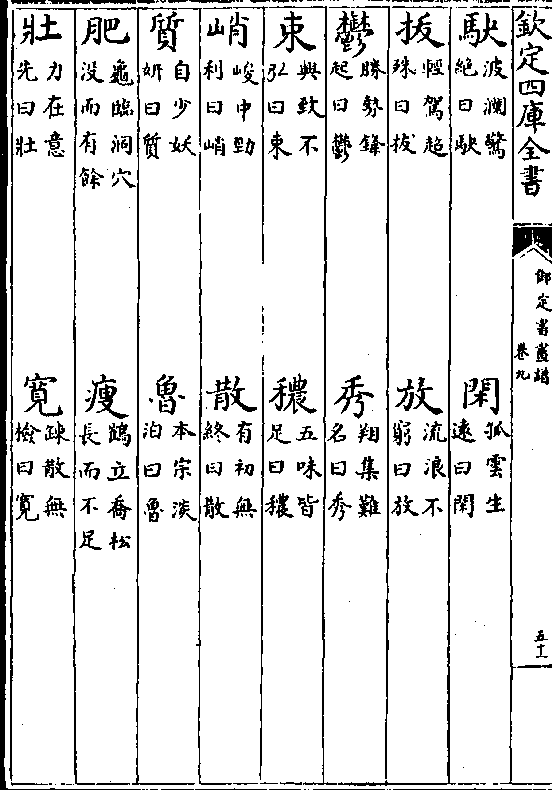 欽定四庫全書
御定書畫譜
卷九
五十一
駃
波瀾驚
絶曰駃
閑
孤雲生
遠曰閑
拔
輕駕超
殊曰拔
放
流浪不
窮曰放
鬱
勝勢鋒
起曰鬱
秀
翔集難
名曰秀
束
興致不
弘曰束
穠
五味皆
足曰穠
峭
峻中勁
利曰峭
散
有初無
終曰散
質
自少妖
妍曰質
魯
本宗淡
泊曰魯
肥
龜臨洞穴
没而有餘
瘦
鶴立喬松
長而不足
壯
力在意
先曰壯
寛
踈散無
檢曰寛